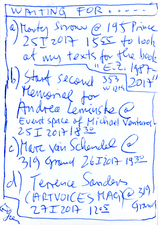 WAITING FOR.....
a) Monty Sivrow @ 195 Prince
25 I 2017 1555 to look
at my texts for the book
"E.Z. 1987-
b) Start second 353 WQIA
Memorial for
Andrea Leminske @
Event space of Michael Venturas
25 I 2017 1830
c) Merc van Schendel @
319 Grand 26 I 2017 1930
d) Terrence Sanders
(ARTVOICES MAG) @ 319
27 I 2017 1205 Grand